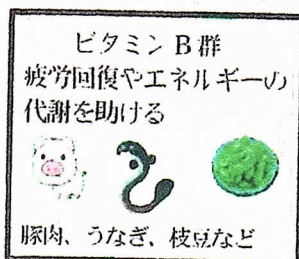 ビタミンB群
疲労回復やエネルギーの
代謝を助ける
豚肉、うなぎ、枝豆など